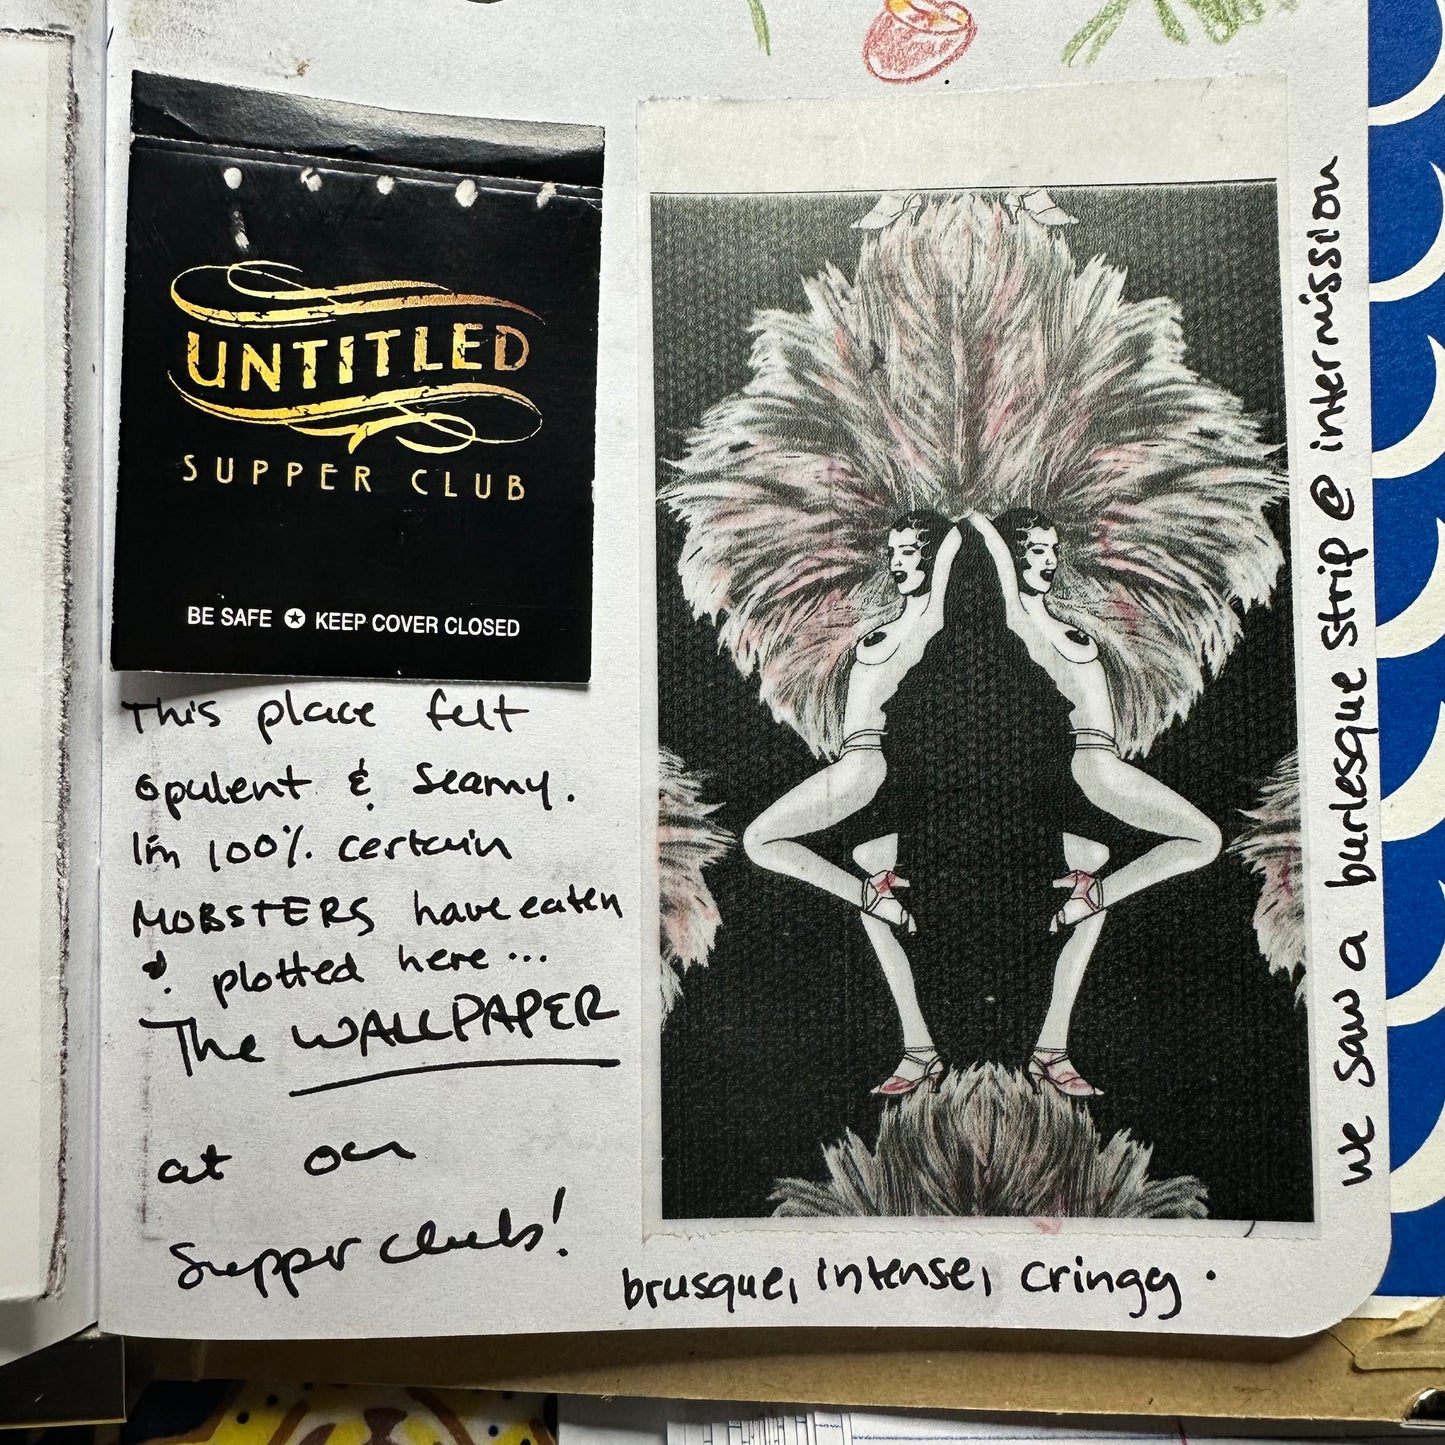 UNTITLED
SUPPER CLUB
BE SAFE ✪ KEEP COVER CLOSED
This place felt
opulent & Seamy.
I'm 100% certain
MOBSTERS have eaten
& plotted here...
The WALLPAPER
at our
Supper club!
brusque, intense, cringy.
we saw a burlesque strip @ intermission